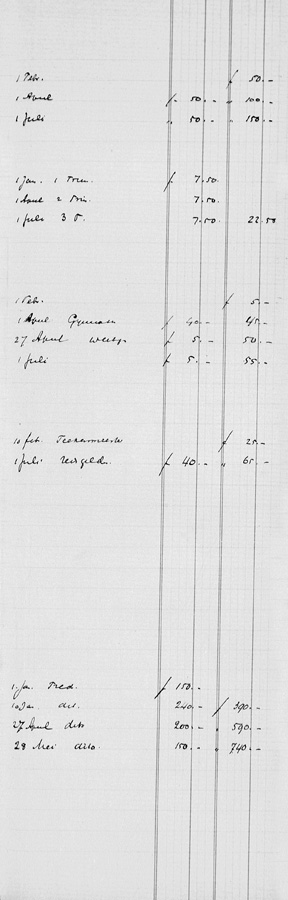 1 Febr. ƒ 50.-
1 April ƒ 50.- " 100.-
1 Juli " 50.- " 150.-
1 Jan. 1 Trim. ƒ 7.50
1 April 2 Trim. 7.50
1 Juli 3 T. 7.50 22.50
1 Febr. ƒ 5.-
1 April Gymnasm ƒ 40.- 45.-
27 April ƒ 5.- 50.-
1 Juli ƒ 5.- 55.-
10 feb. Teekenmeester ƒ 25.-
1 Juli Reisgeld ƒ 40.- " 65.-
1 Jan. Tred. ƒ 150.-
10 Jan. dit. 240.- ƒ 390.-
27 April dito 200.- " 590.-
28 Mei dito. 150.- " 740.-